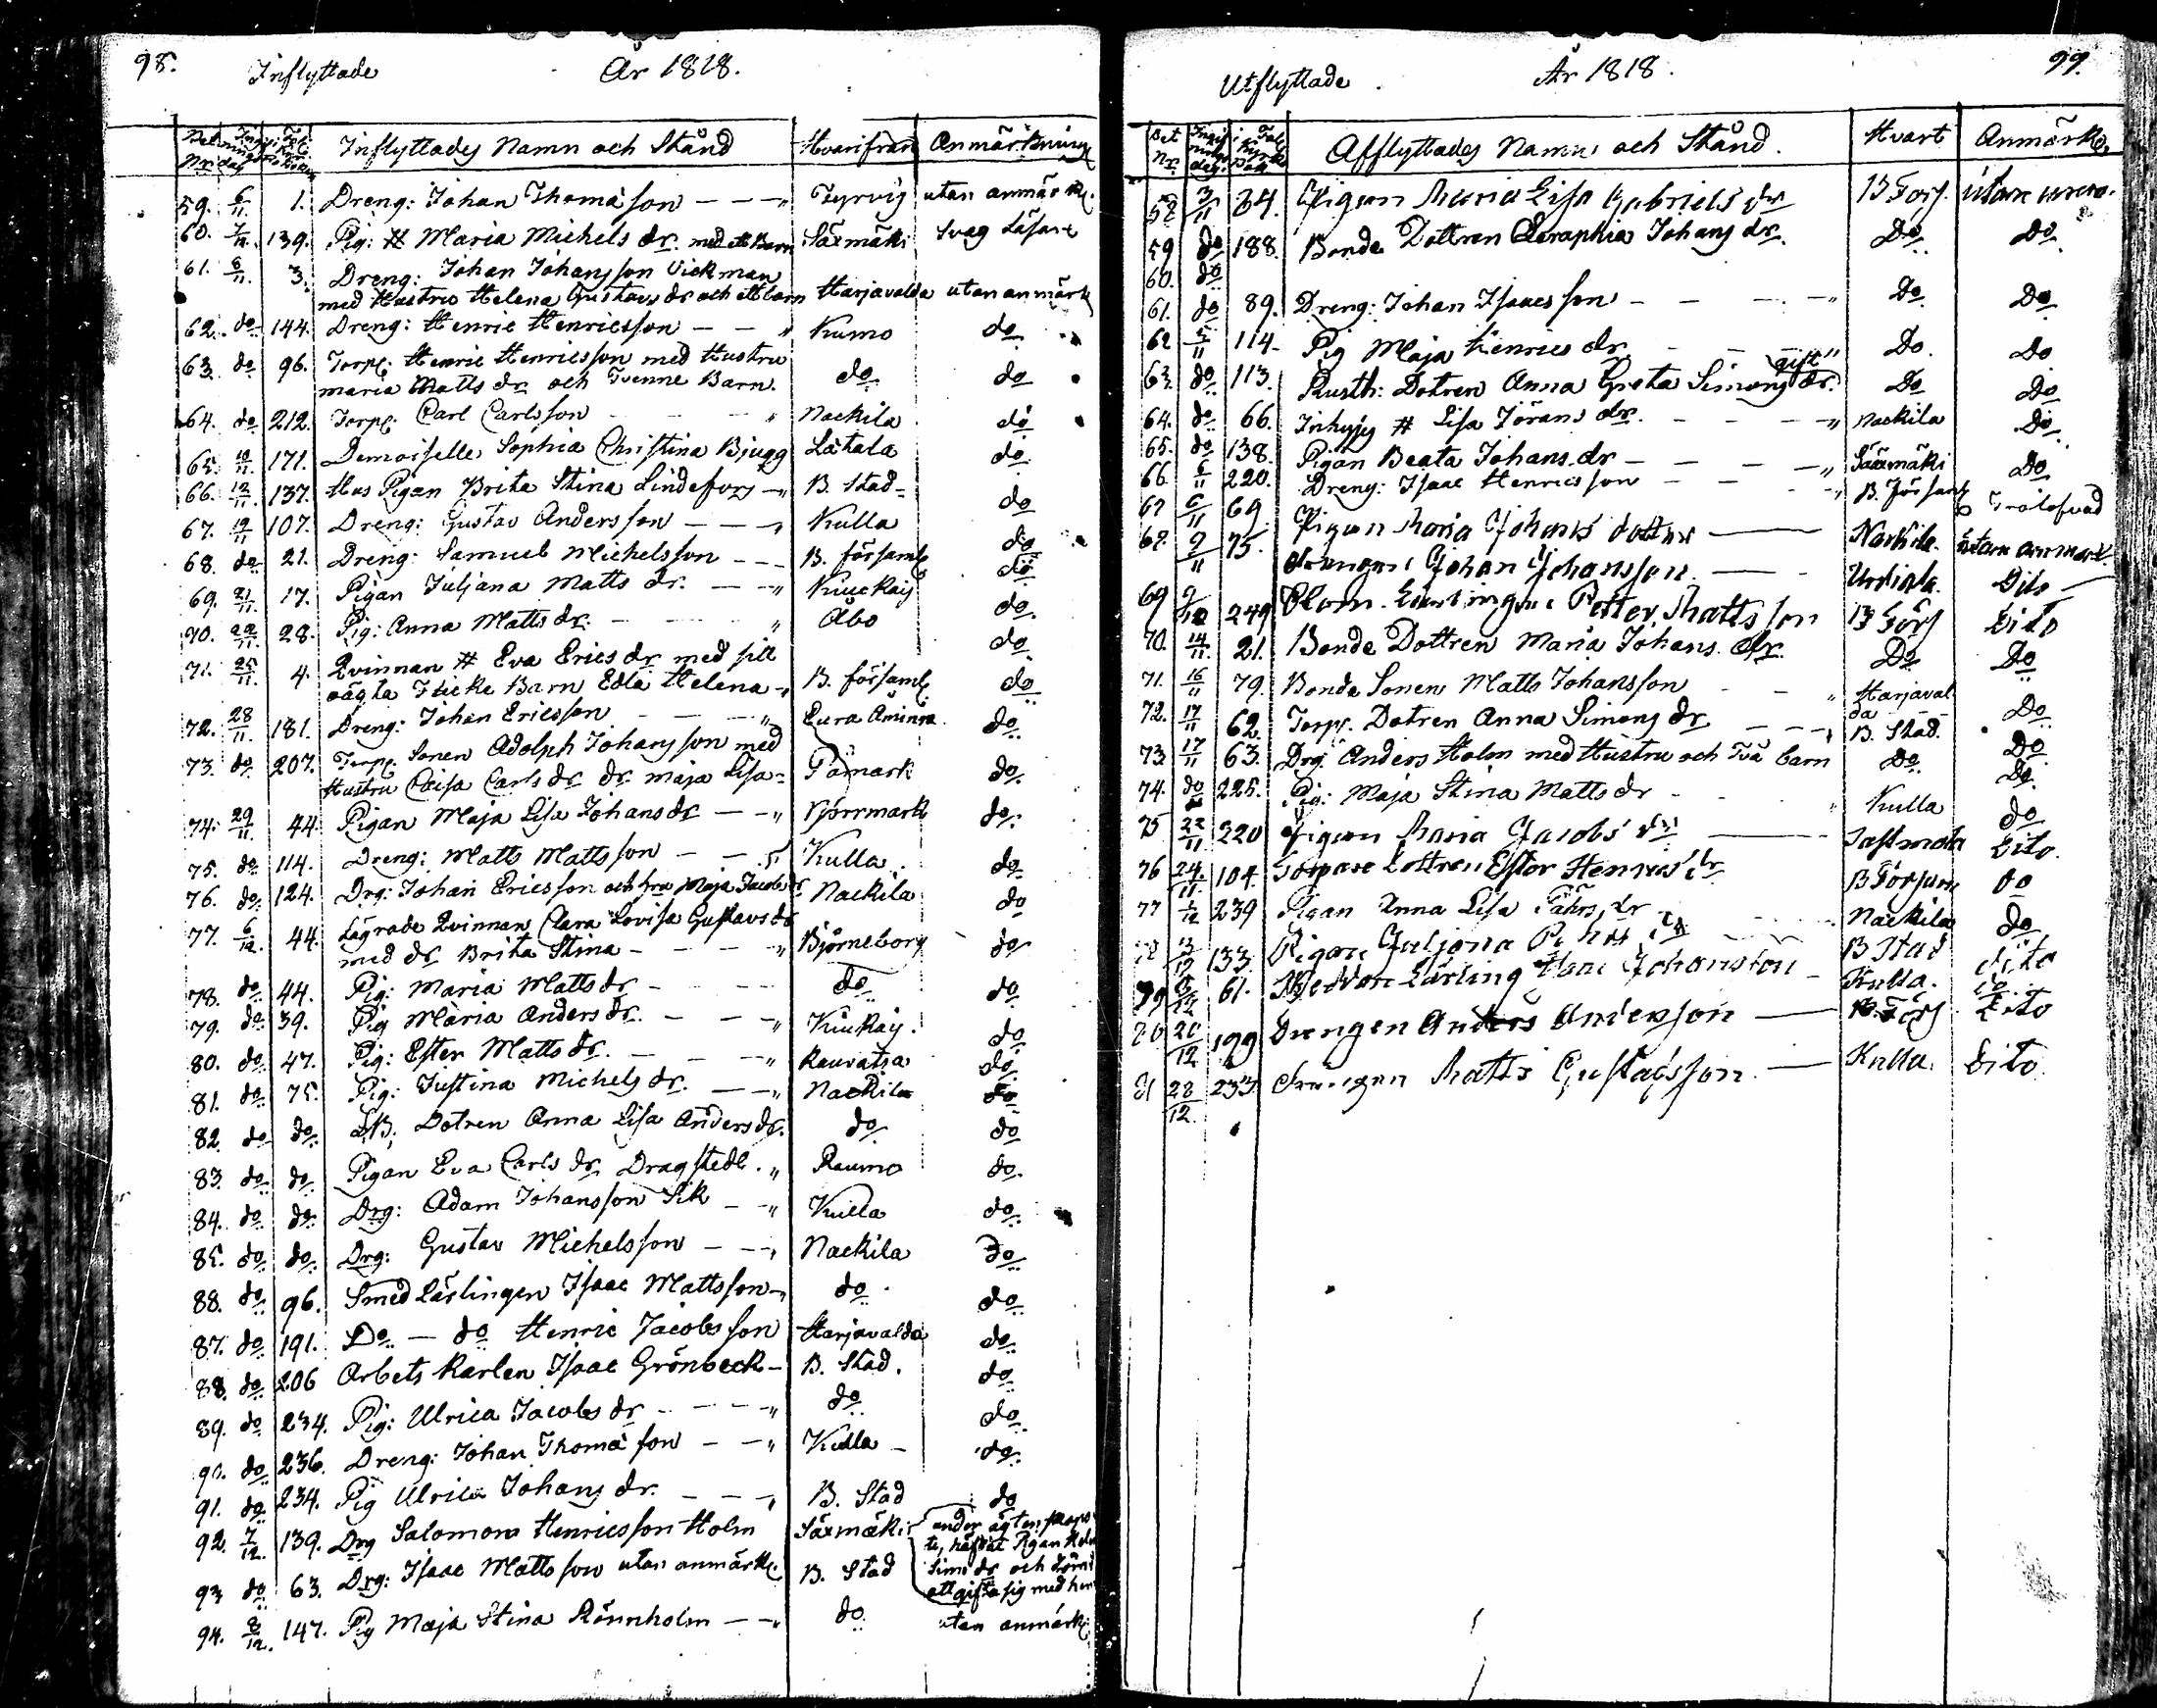 98. Inflyttade År 1818.
Inflyttades Namn och Stånd Hvarifrån Anmärkning
59. 6/11 1. Dreng: Johan Thomasson — — „ Tyrvis utan anmärk.
60. 7/11 139. Pig: # Maria Michels dr. med ett Barn Säxmäki Svag Läsare
61. 8/11 3. Dreng: Johan Johansson Vickman
med Hustru Helena Gustavs dr och ett barn Harjavalda utan anmärk
62. do 144. Dreng: Henric Henricsson — — „ Kumo do
63. do 96. Torp: Henric Henricsson med Hustru
maria Matts dr och Tvenne Barn. do do
64. do 212. Torp: Carl Carlsson „ Nackila do
65. 10/11 171. Demoiselle Sophia Christina Bjugg Låtala do
66. 12/11 137. Hus Pigan Brita Stina Lindefors — „ B. Stad do
67. 19/11 107. Dreng: Gustav Andersson — — „ Kulla do
68. do 21. Dreng: Samuel Michelsson — — B. församl do
69. 21/11 17. Pigan Juljana Matts dr. — „ Kiuckais do
70. 22/11 28. Pig: Anna Matts dr. „ Åbo do
71. 25/11 4. Qvinnan # Eva Erics dr med sitt
oägta Flicke Barn Edla Helena „ B. församl do
72. 28/11 181. Dreng: Johan Ericsson „ Eura Åminne do
73. do 207. Torp: Sonen Adolph Johansson med
Hustru Caisa Carls dr dr maja Lisa Påmark do
74. 29/11 44. Pigan Maja Lisa Johans dr — „ Norrmark do
75. do 114. Dreng: Matts Mattsson — Kulla do
76. do 124. Drg: Johan Ericsson och hru Maja Jacobs dr Nackila do
77. 6/12 44. Lägrade Qvinnan Clara Lovisa Gustavs dr
med dr Brita Stina — — „ Björneborg do
78. do 44. Pig: Maria Matts dr do do
79. do 39. Pig Maria Anders dr. — — „ Kiukais. do
80. do 47. Pig: Ester Matts dr. — „ Kauvatsa do
81. do 75. Pig: Justina Michels dr. — „ Nackila do
82 do do Dotren Anna Lisa Anders dr. do do
83. do do Pigan Eva Carls dr Dragstedt. „ Raumo do
84. do do Drg: Adam Johansson Sik — „ Kulla do
85. do do Drg: Gustav Michelsson — „ Nackila do
88. do 96. Smed Lärlingen Isaac Mattsson „ do do
87. do 191. Do — do Henric Jacobsson Harjavalda do
88. do 206 Arbets Karlen Isaac Grönbeck — B. Stad. do
89. do 234. Pig: Ulrica Jacobs dr „ do do
90. do 236. Dreng: Johan Thomasson — „ Kulla do
91. do 234. Pig Ulrica Johans dr. — „ B. Stad do
92. 7/12 139. Drg Salomon Henricsson Holm Säxmäki under ägtenskaps
93 do 63. Drg: Isaac Mattsson utan anmärk. B. Stad dr och
att gifta sig med hen
94. 8/12 147. Pig Maja Stina Rönnholm — „ do utan anmärk:
Utflyttade År 1818. 99.
Afflyttades Namn och Stånd. Hvart Anmärk.
3/11 64. Pigan Maria Lisa Gabriels dr B Förs. utan anm.
59 do 188. Bonde Dottren Seraphia Johans dr. Do Do
60. do
61. do 89. Dreng: Johan Isaacsson — — „ Do Do
62 5/11 114. Pig Maja Henrics dr — — „ Do Do
63. do 113. Rusth: Dotren Anna Greta Simons gift dr. Do Do
64. do 66. Inhyses # Lisa Jörans dr. — — „ Nackila Do
65. do 138. Pigan Beata Johans dr — — „ Säxmäki Do
66 6/11 220. Dreng: Isaac Henricsson — — „ B. Församl Trolofvad
67 6/11 69 Pigan Maria Johans dotter — Nackila utan anmärk.
68. 9/11 75. drengen Johan Johansson — Urdiala Dito
69 249 Petter Mattsson B Förs Dito
70. 14/11 21. Bonde Dottren Maria Johans dr. Do Do
71. 16/11 79. Bonde Sonen Matts Johansson „ Harjaval
da Do
72. 17/11 62. Torp: Dotren Anna Simons dr — — „ B. Stad Do
73. 17/11 63. Drg Anders Holm med Hustru och Två barn Do Do
74. do 225. Pig: Maja Stina Matts dr „ Kulla do
75 22/11 220 Pigan Maria Jacobs dr — Sastmola Dito
76 24/11 104. Torpare Dottren Ester Henrics dr B Försam do
77 239 Pigan Anna Lisa dr Nackila do
133. Pigan Juljana B Stad dito
79 61. Lärling Johansson Kulla. do
80 20/12 199 Drengen Anders Andersson — B. Förs Dito
81 28/12 233 Drengen Matts Gustafsson — Kulla. Dito